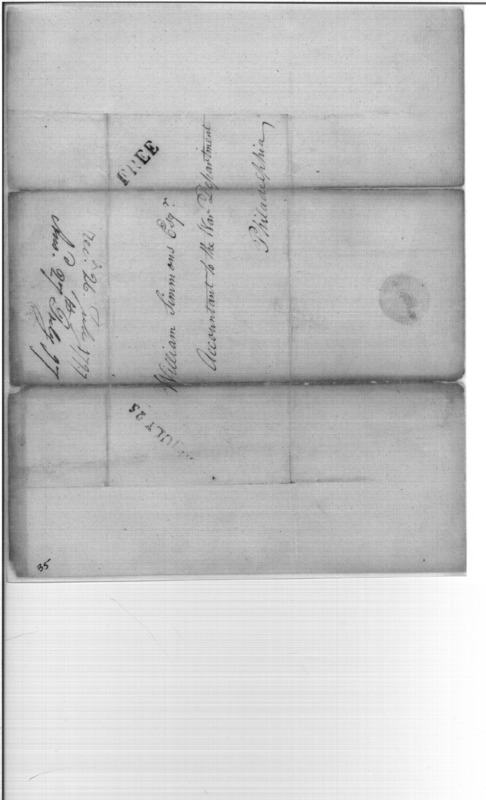 FREE
William Simmons Esqr.
Accountant to the War Department
Philadelphia
JULY 25
26 July 1797
35